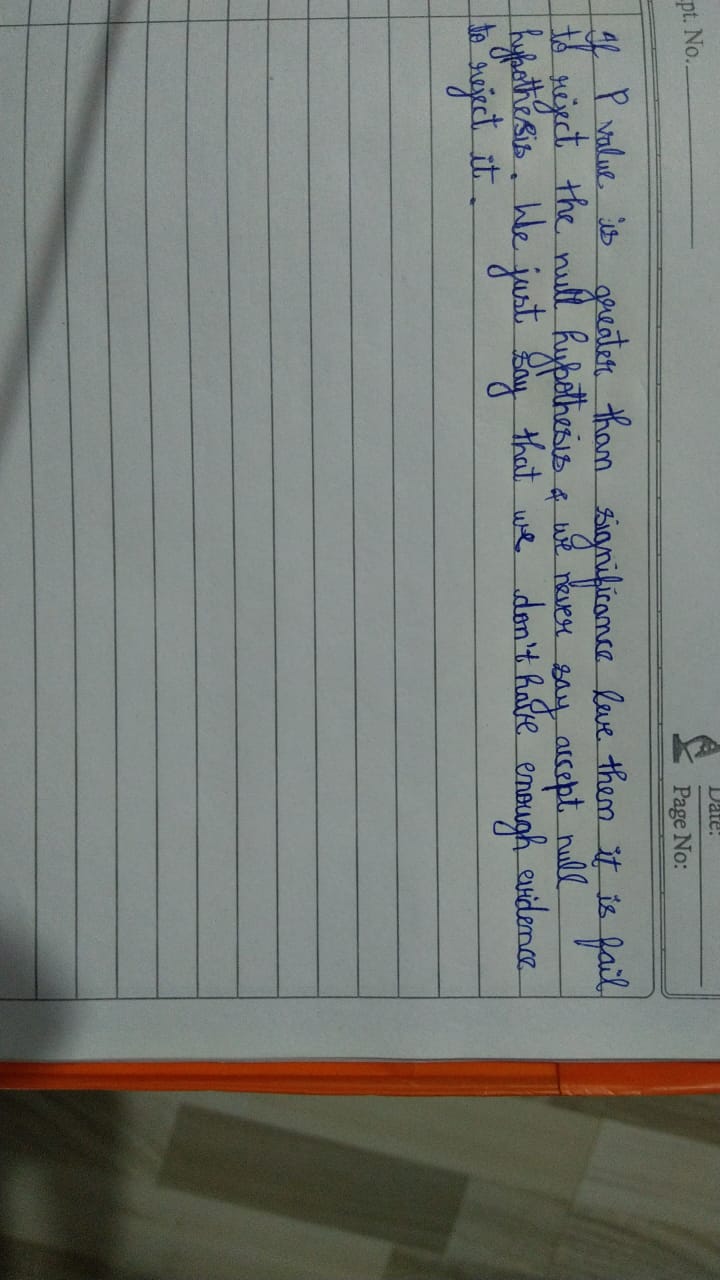 pt. No.
Date:
Page No:
If P value is greater than significance leve them it is fail
to reject the null hypothesis & we never say accept null
hypothesis. We just say that we don't have enough evidence
to reject it.